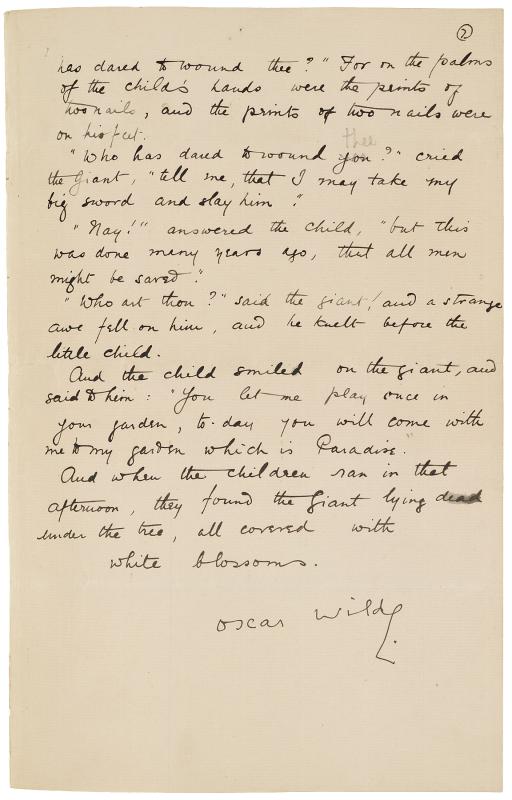 2
has dared to wound thee?" For on the palms
of the child's hands were the prints of
two nails, and the prints of two nails were
on his feet.
thee
"Who has dared to wound you?" cried
the Giant, "tell me, that I may take my
big sword and slay him."
"Nay!" answered the child, "but this
was done many years ago, that all men
might be saved."
"Who art thou?" said the giant, and a strange
awe fell on him, and he knelt before the
little child.
And the child smiled on the giant, and
said to him: "You let me play once in
your garden, to-day you will come with
me to my garden which is Paradise."
And when the children ran in that
afternoon, they found the Giant lying dead
under the tree, all covered with
white blossoms.
Oscar Wilde.